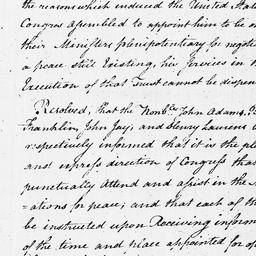 the reasons which induced the United Stat
Congress assembled to appoint him to be on
their Ministers plenipotentiary for negotia
a peace still Existing, his services in th
Execution of that Trust cannot be dispen
Resolved, that the Honble. John Adams, B
Franklin, John Jay, and Henry Laurens
respectively informed that it is the ple
and express direction of Congress that
punctually attend and assist in the
=ations for peace; and that each of th
be instructed upon Receiving inform
of the time and place appointed for op